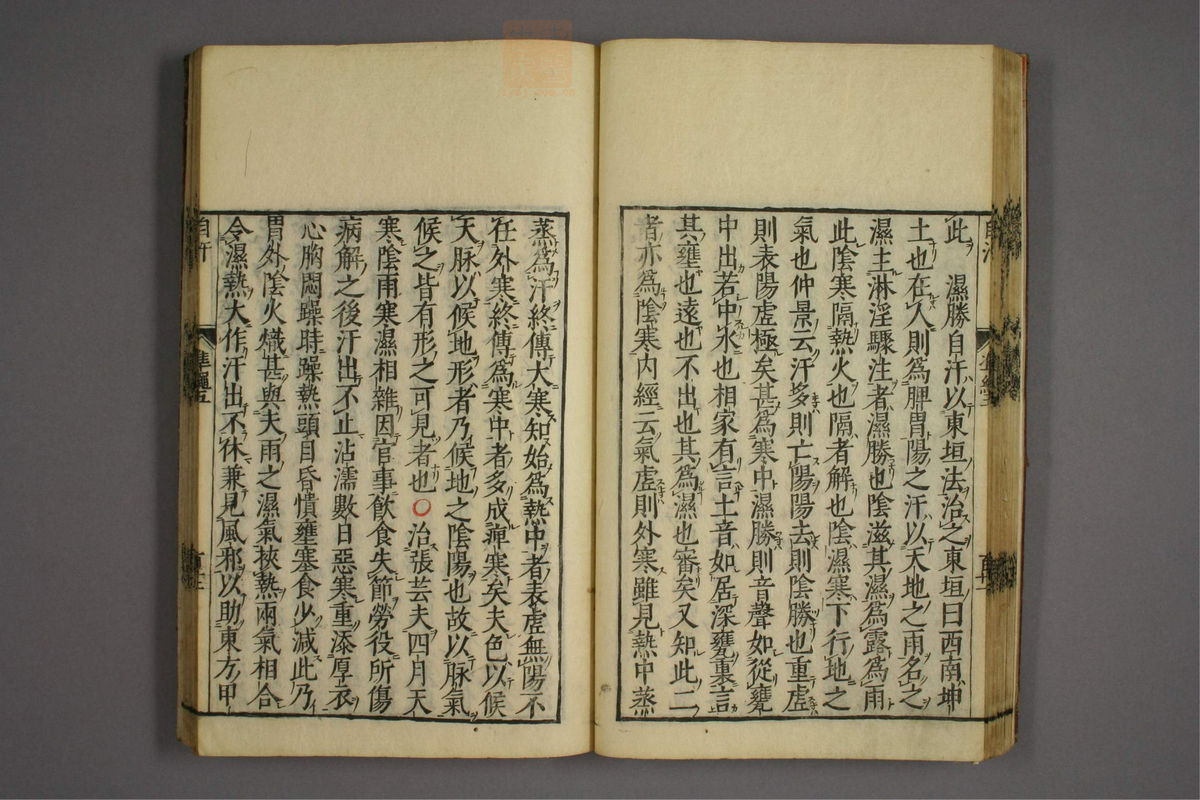 此　濕勝自汗以東垣法治之東垣曰西南坤
土也在人則爲脾胃陽之汗以天地之雨名之
濕主淋淫驟注者濕勝也陰滋其濕爲露爲雨
此陰寒隔熱火也隔者解也陰濕寒下行地之
氣也仲景云汗多則亡陽陽去則陰勝也重虛
則表陽虛極矣甚爲寒中濕勝則音聲如從甕
中出若中水也相家有言土音如居深甕裏言
其壅也遠也不出也其爲濕也審矣又知此二
者亦爲陰寒内經云氣虛則外寒雖見熱中蒸
蒸爲汗終傳大寒知始爲熱中者表虛無陽不
任外寒終傳爲寒中者多成痺寒矣夫色以候
天脉以候地形者乃候地之陰陽也故以脉氣
候之皆有形之可見者也○治張芸夫四月天
寒陰雨寒濕相雜因官事飲食失節勞役所傷
病解之後汗出不止沾濡數日惡寒重添厚衣
心胸悶躁時躁熱頭目昏憒壅塞食少減此乃
胃外陰火熾甚與夫雨之濕氣挾熱兩氣相合
令濕熱大作汗出不休兼見風邪以助東方甲
自汗
準繩五